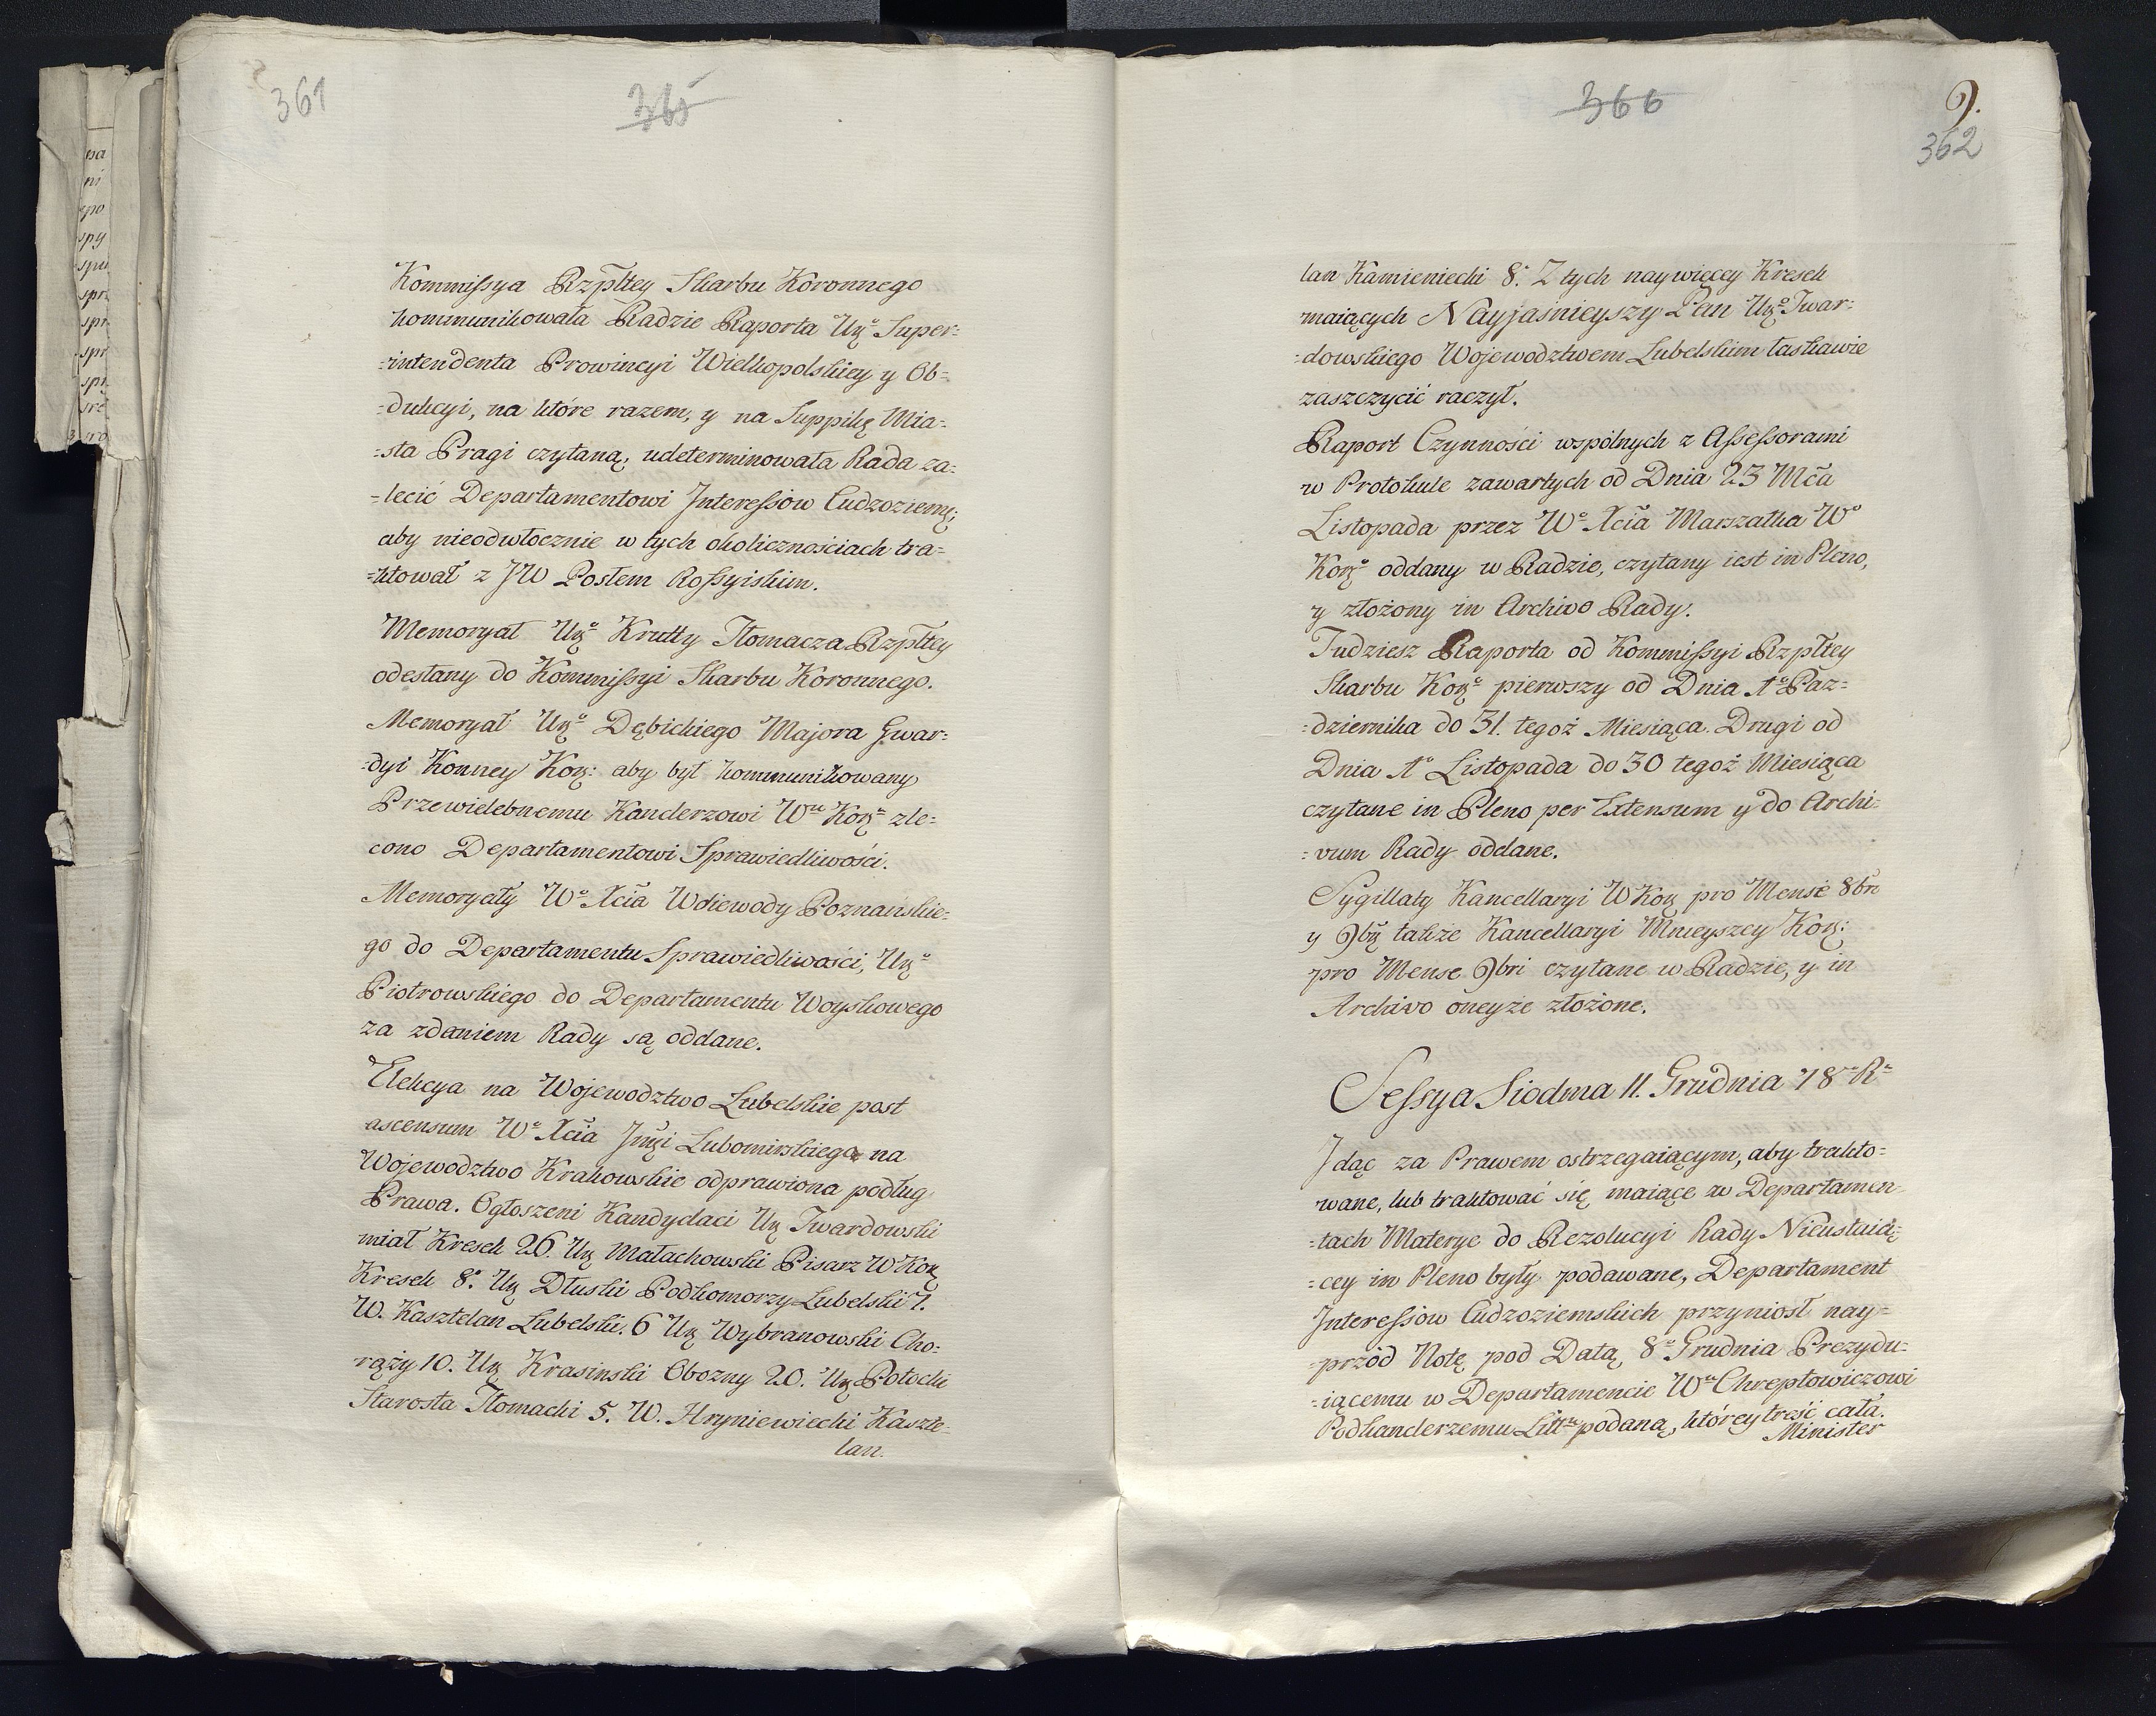 361
365
Kommissya Rzpltey Skarbu Koronnego
kommunikowała Radzie Raporta Ur° Super-
-intendenta Prowincyi Wielkopolskiey y Ob-
-dukcyi, na które razem, y na Supplikę Mia-
-sta Pragi czytaną, udeterminowała Rada za-
-lecić Departamentowi Jnteressow Cudzoziem:
aby nieodwłocznie w tych okolicznościach tra-
-ktował z JW Posłem Rossyiskim.
Memoryał Ur° Krutty Tłomacza Rzpltey
odesłany do Kommissyi Skarbu Koronnego.
Memoryał Ur° Dębickiego Majora Gwar-
-dyi Konney Kor: aby był kommunikowany
Przewielebnemu Kanclerzowi Wmu Kor° zle-
cono Departamentowi Sprawiedliwości.
Memoryały W° Xcia Wdiewody Poznańskie-
go do Departamentu Sprawiedliwości, Ur°
Piotrowskiego do Departamentu Woyskowego
za zdaniem Rady są oddane.
Elekcya na Wojewodztwo Lubelskie post
ascensum W° Xcia Jmci Lubomirskiego na
Wojewodztwo Krakowskie odprawiona podług
Prawa. Ogłoszeni Kandydaci Ur Twardowski
miał Kresek 26. Ur Małachowski Pisarz W Kor
Kresek 8. Ur Dłuski Podkomorzy Lubelski 7.
W. Kasztelan Lubelski. 6 Ur Wybranowski Cho-
rąży 10. Ur Krasinski Obozny 20. Ur Potocki
Starosta Tłomacki 5. W. Hryniewiecki Kaszte-
lan.
366
9.
362
lan Kamieniecki 8. Z tych naywięcey Kresek
maiących Nayjaśnieyszy Pan Ur° Twar-
-dowskiego Wojewodztwem Lubelskim łaskawie
zaszczycić raczył.
Raport Czynności wspólnych z Assessorami
w Protokule zawartych od Dnia 23 Mca
Listopada przez W° Xcia Marszałka W°
Kor° oddany w Radzie, czytany iest in Pleno,
y złożony in Archivo Rady.
Tudziesz Raporta od Kommissyi Rzpltey
Skarbu Kor° pierwszy od Dnia 1° Paz-
-dziernika do 31. tegoż Miesiąca. Drugi od
Dnia 1° Listopada do 30 tegoż Miesiąca
czytane in Pleno per Extensum y do Archi-
-vum Rady oddane.
Sygillaty Kancellaryi W Kor pro Mense 8bri
y 9br także Kancellaryi Mnieyszey Kor:
pro Mense 9bri czytane w Radzie, y in
Archivo oneyże złożone.
Sessya Siodma 11. Grudnia 78° R°
Jdąc za Prawem ostrzegaiącym, aby trakto-
wane, lub traktować się maiące w Departamen-
-tach Materye do Rezolucyi Rady Nieustaią-
-cey in Pleno były podawane, Departament
Jnteressow Cudzoziemskich przyniosł nay-
-przód Notę pod Datą 8° Grudnia Prezydu-
-iącemu w Departamencie Wmu Chreptowiczowi
Podkanclerzemu Littmu podaną, którey treść cała.
Minister